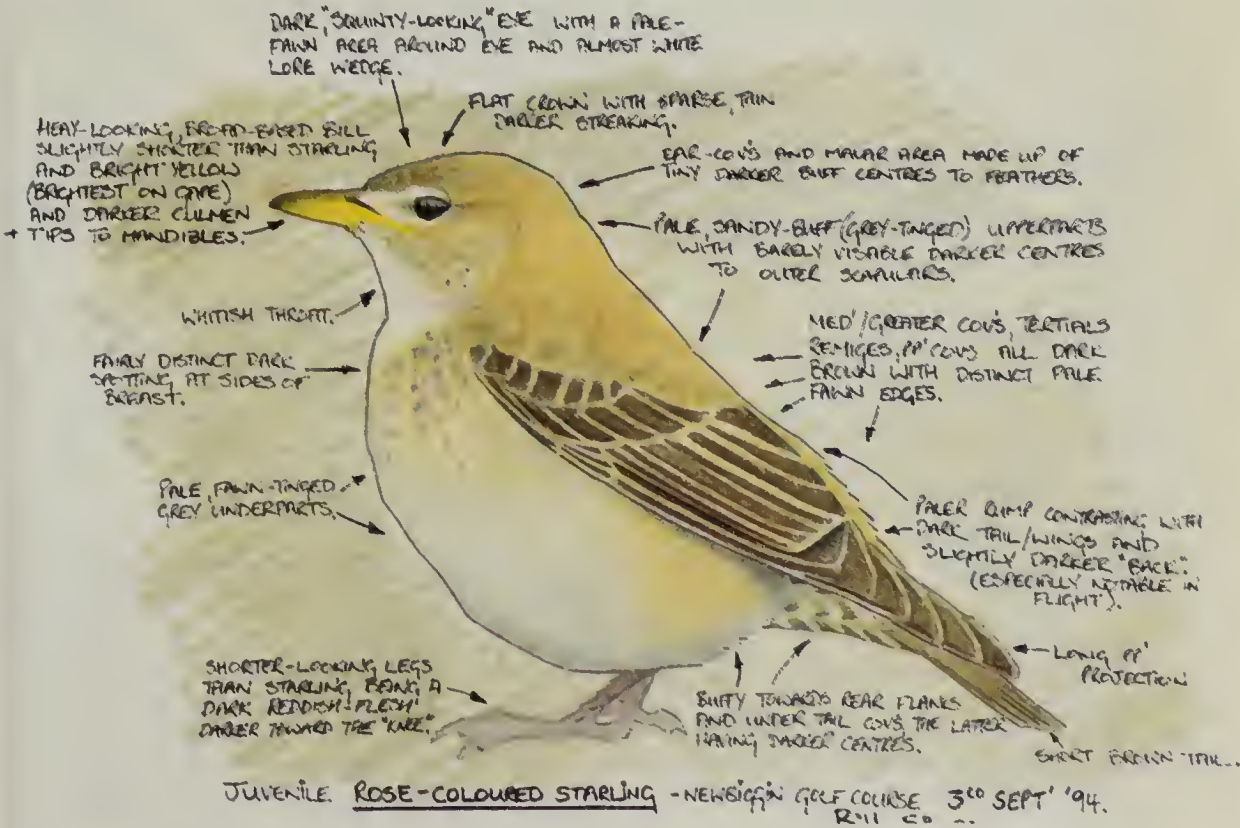 DARK, "SQUINTY-LOOKING" EYE WITH A PALE-
FAWN AREA AROUND EYE AND ALMOST WHITE
LORE WEDGE.
FLAT CROWN WITH SPARSE, THIN
DARKER STREAKING.
HEAY-LOOKING, BROAD-BASED BILL
SLIGHTLY SHORTER THAN STARLING
AND BRIGHT YELLOW
(BRIGHTEST ON GAPE)
AND DARKER CULMEN
+ TIPS TO MANDIBLES.
EAR-COV'S AND MALAR AREA MADE UP OF
TINY DARKER BUFF CENTRES TO FEATHERS.
PALE, SANDY-BUFF (GREY-TINGED) UPPERPARTS
WITH BARELY VISABLE DARKER CENTRES
TO OUTER SCAPULARS.
WHITISH THROAT.
MED'/GREATER COV'S, TERTIALS
REMIGES, PP' COV'S ALL DARK
BROWN WITH DISTINCT PALE
FAWN EDGES.
FAIRLY DISTINCT DARK
SPOTTING AT SIDES OF
BREAST.
PALE, FAWN-TINGED
GREY UNDERPARTS.
PALER RUMP CONTRASTING WITH
DARK TAIL/WINGS AND
SLIGHTLY DARKER "BACK".
(ESPECIALLY NOTABLE IN
FLIGHT).
LONG PP'
PROJECTION
SHORTER-LOOKING LEGS
THAN STARLING, BEING A
DARK REDDISH-FLESH
DARKER TOWARD THE "KNEE".
BUFFY TOWARDS REAR FLANKS
AND UNDER TAIL COV'S, THE LATTER
HAVING DARKER CENTRES.
SHORT BROWN TAIL
JUVENILE ROSE-COLOURED STARLING - NEWBIGGIN GOLF COURSE 3RD SEPT' '94.